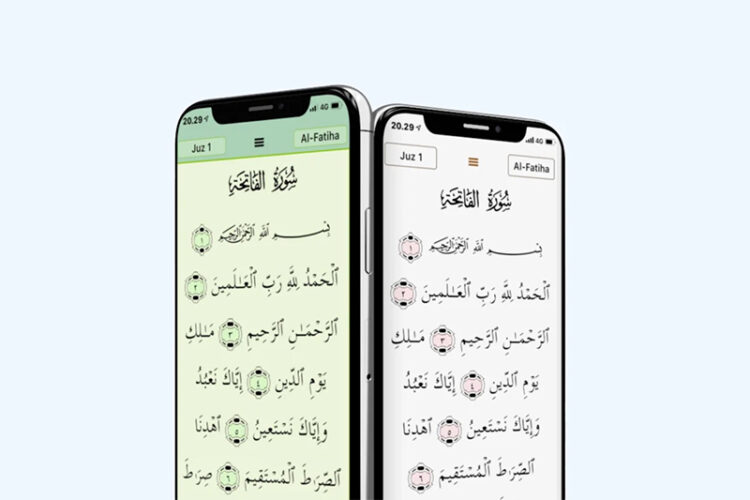 20.29 4G
Juz 1 Al-Fatiha
سُورَةُ الفَاتِحَةِ
بِسْمِ ٱللَّهِ ٱلرَّحْمَٰنِ ٱلرَّحِيمِ ١
ٱلْحَمْدُ لِلَّهِ رَبِّ ٱلْعَـٰلَمِينَ ٢
ٱلرَّحْمَـٰنِ ٱلرَّحِيمِ ٣ مَـٰلِكِ
يَوْمِ ٱلدِّينِ ٤ إِيَّاكَ نَعْبُدُ
وَإِيَّاكَ نَسْتَعِينُ ٥ ٱهْدِنَا
ٱلصِّرَٰطَ ٱلْمُسْتَقِيمَ ٦ صِرَٰطَ
20.29 4G
Juz 1 Al-Fatiha
سُورَةُ الفَاتِحَةِ
بِسْمِ ٱللَّهِ ٱلرَّحْمَٰنِ ٱلرَّحِيمِ ١
ٱلْحَمْدُ لِلَّهِ رَبِّ ٱلْعَـٰلَمِينَ ٢
ٱلرَّحْمَـٰنِ ٱلرَّحِيمِ ٣ مَـٰلِكِ
يَوْمِ ٱلدِّينِ ٤ إِيَّاكَ نَعْبُدُ
وَإِيَّاكَ نَسْتَعِينُ ٥ ٱهْدِنَا
ٱلصِّرَٰطَ ٱلْمُسْتَقِيمَ ٦